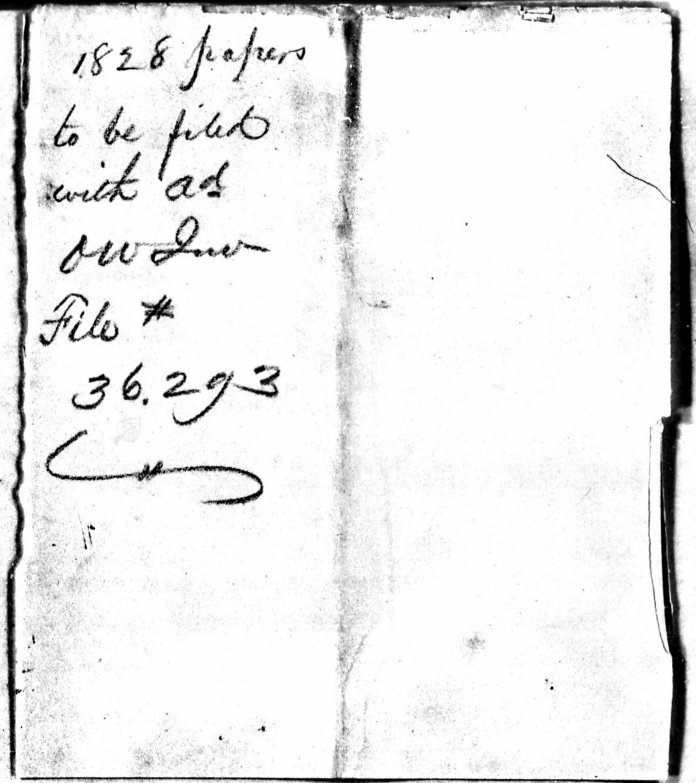 1828 papers
to be filed
with ad
OW Inv
File #
36.293